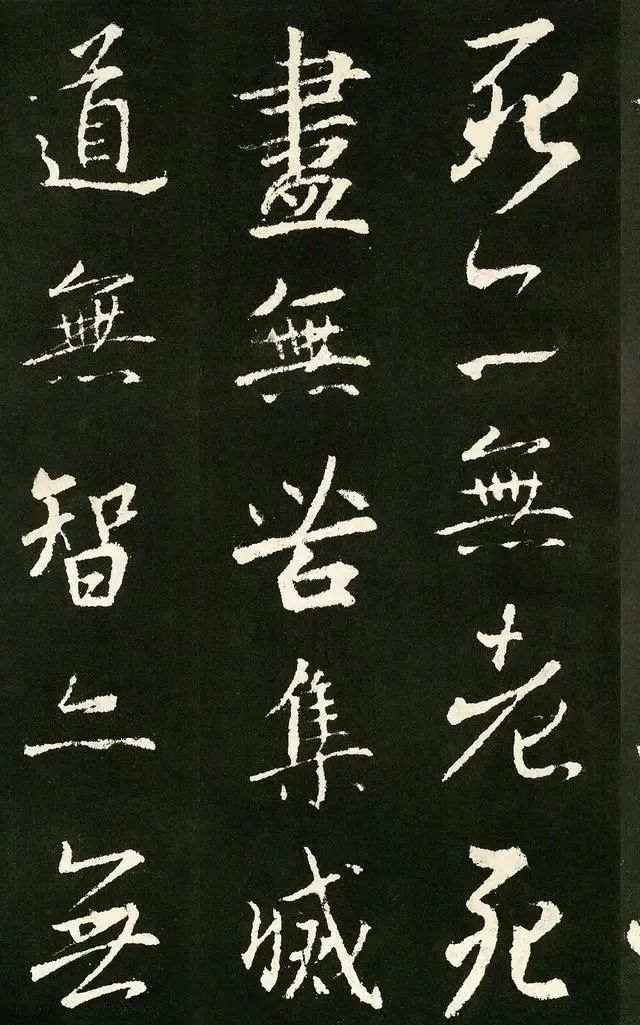 死亦無老死
盡無苦集滅
道無智亦無